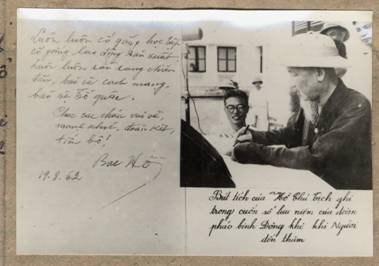 Luôn luôn cố gắng học tập
cố gắng lao động sản xuất
luôn luôn sẵn sàng chiến
đấu, bảo vệ cách mạng,
bảo vệ tổ quốc.
Chúc các cháu vui vẻ,
mạnh khoẻ, đoàn kết,
tiến bộ!
Bác Hồ
19.8.62
Bút tích của Hồ Chủ Tịch ghi
trong cuốn sổ lưu niệm của đoàn
pháo binh Đông khê khi Người
đến thăm